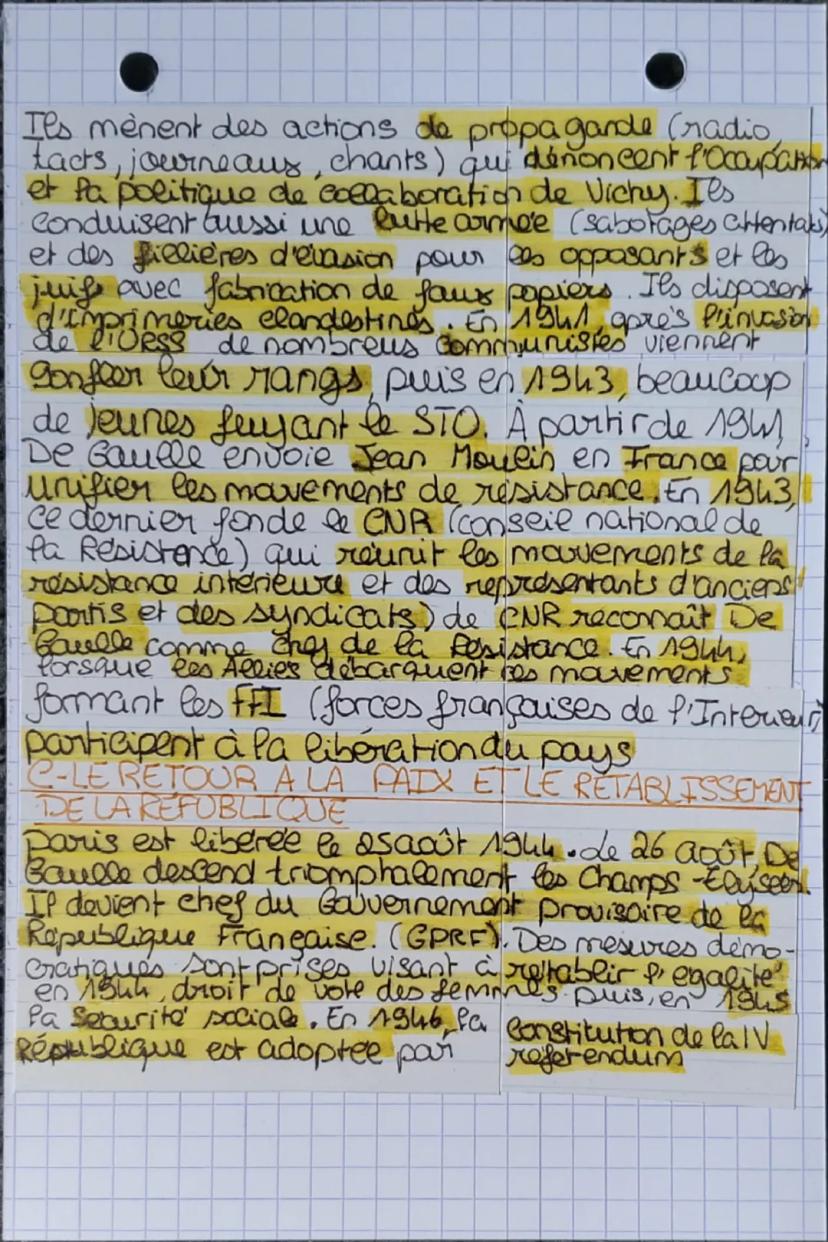 Ils mènent des actions de propagande (radio,
tacts, journeaux, chants) qui dénoncent l'Occupation
et la politique de collaboration de Vichy. Ils
conduisent aussi une lutte armée (sabotages attentats)
et des fillières d'évasion pour les opposants et les
juifs avec fabrication de faux papiers. Ils disposent
d'imprimeries clandestines. En 1941, après l'invasion
de l'URSS de nombreus communistes viennent
gonfler leur rangs, puis en 1943, beaucoup
de jeunes fuyant le STO. À partir de 1941,
De Gaulle envoie Jean Moulin en France pour
unifier les mouvements de résistance. En 1943,
ce dernier fonde le CNR (conseil national de
la Résistence) qui réunit les mouvements de la
résistance intérieure et des représentants d'anciens
partis et des syndicats) de CNR reconnaît De
Gaulle comme chef de la Résistance. En 1944,
lorsque les Alliés débarquent ces mouvements
formant les FFI (forces françaises de l'Interieur)
participent à la libération du pays
C-LE RETOUR A LA PAIX ET LE RETABLISSEMENT
DE LA RÉPUBLIQUE
Paris est libérée le 25 août 1944. Le 26 août, De
Gaulle descend triomphalement les Champs-Elysées.
Il devient chef du Gouvernement provisoire de la
République Française. (GPRF). Des mesures démo-
cratiques sont prises visant à rétablir l'egalité
en 1944, droit de vote des femmes puis, en 1945
la Sécurité sociale. En 1946, la constitution de la IV
République est adoptée par référendum